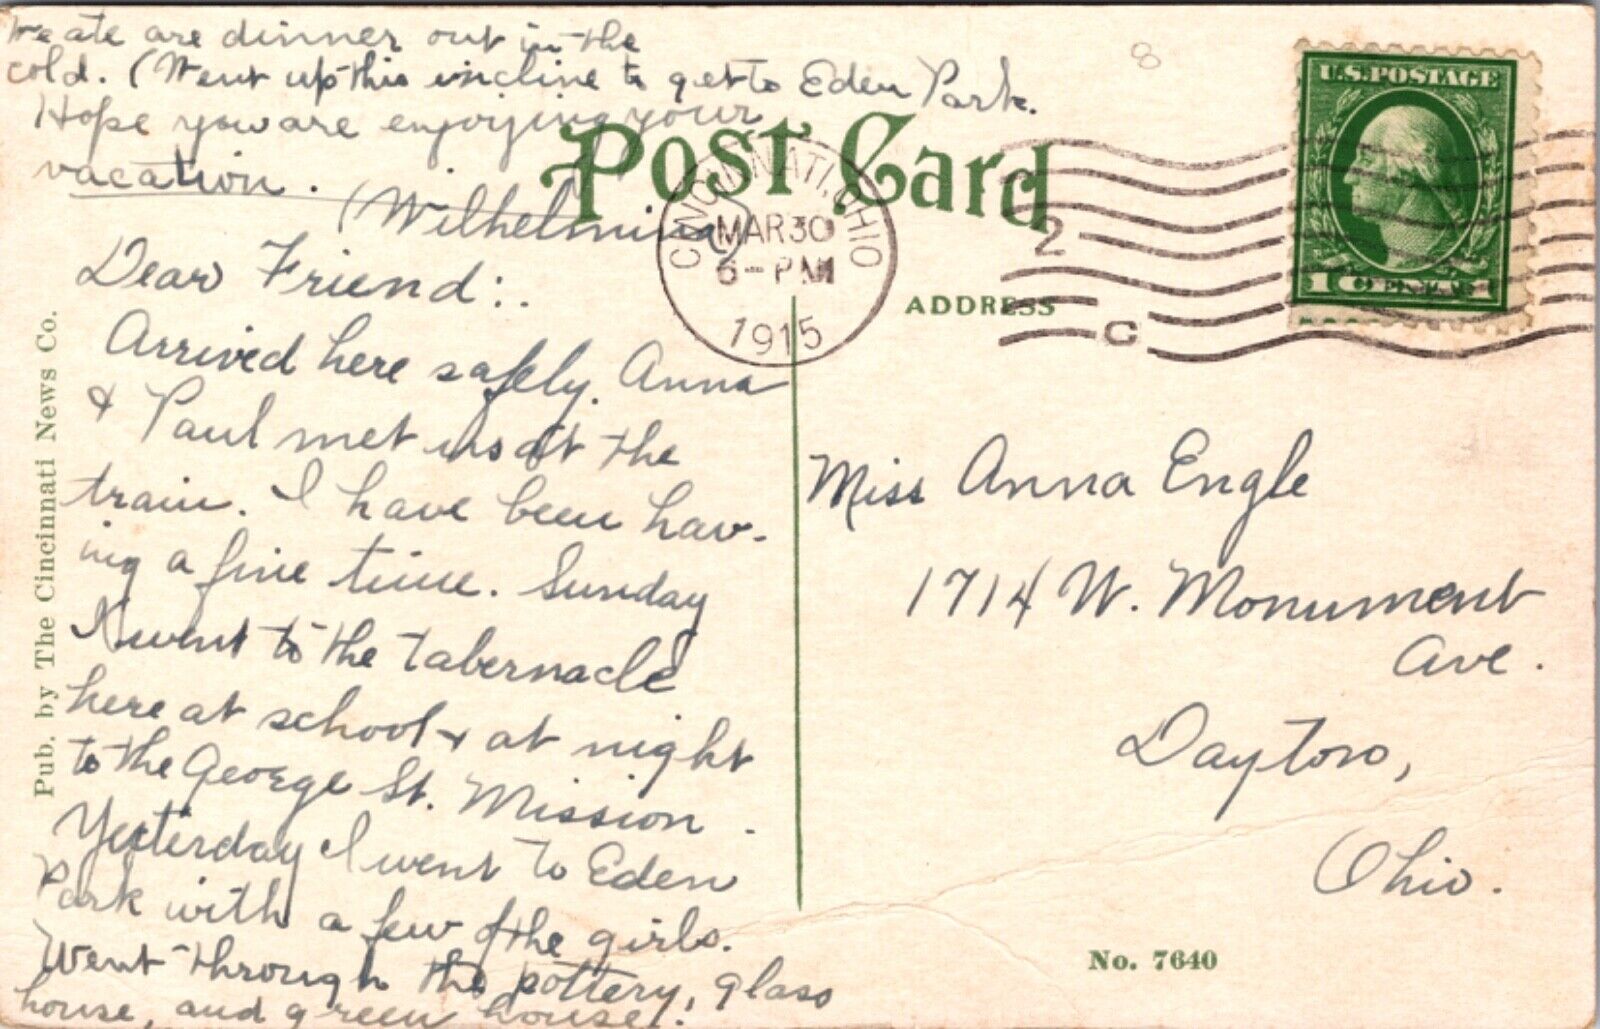 We ate are dinner out in the
cold. (Went up this incline to get to Eden Park.
Hope you are enjoying your
vacation.
(Wilhelmina)
Post Card
CINCINNATI, OHIO
MAR 30
6-PM
1915
2
C
8
U.S. POSTAGE
1 CENT 1
ADDRESS
Dear Friend:.
Arrived here safely. Anna
& Paul met us at the
train. I have been hav-
ing a fine time. Sunday
I went to the tabernacle
here at school & at night
to the George St. Mission.
Yesterday I went to Eden
Park with a few of the girls.
Went through the pottery, glass
house, and green house.
Miss Anna Engle
1714 W. Monument
Ave.
Dayton,
Ohio.
Pub. by The Cincinnati News Co.
No. 7640